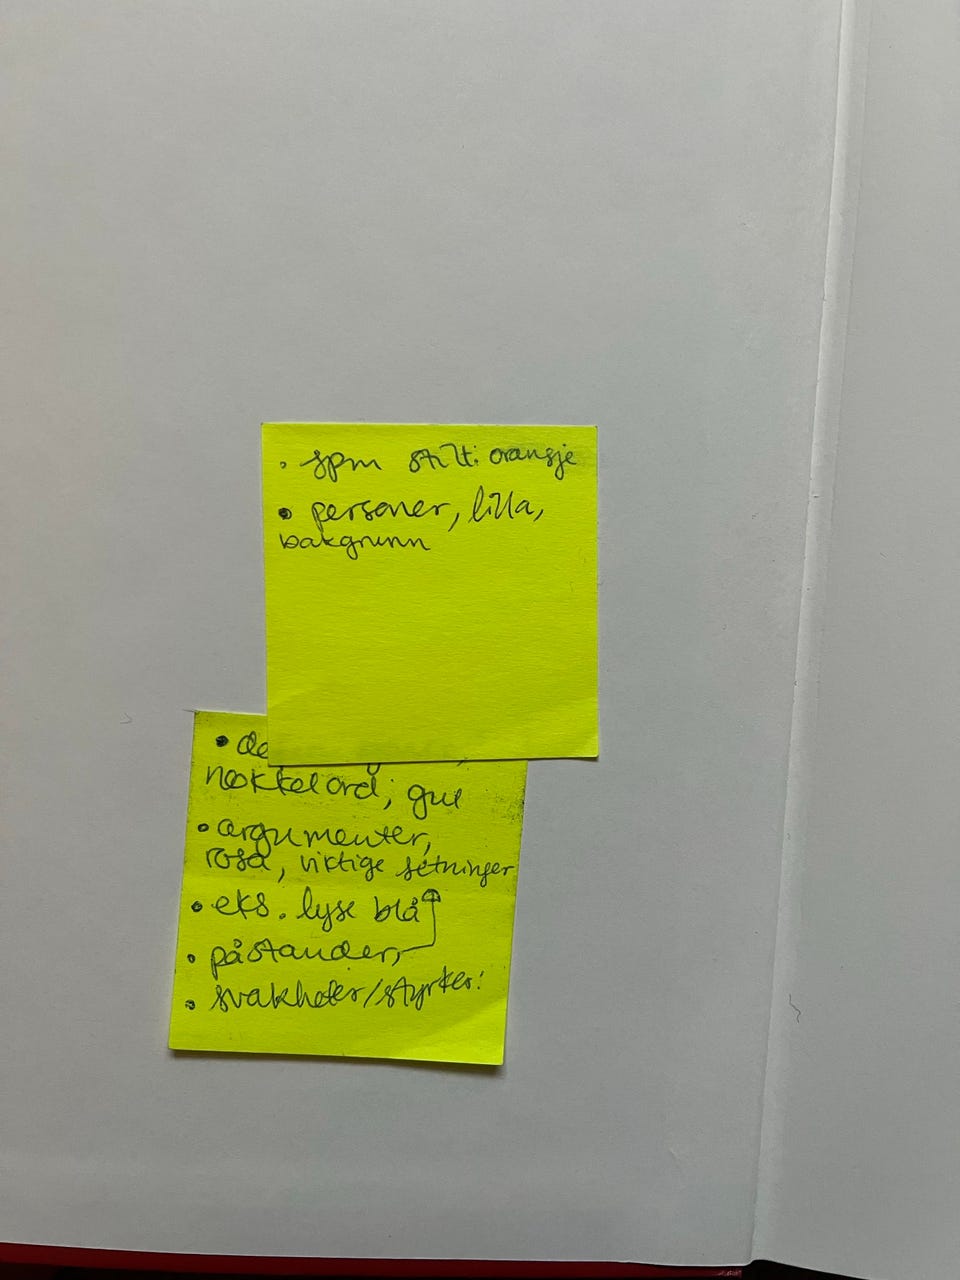 • spm stilt: oransje
• personer, lilla,
bakgrunn
• de
nøkkelord, gul
• argumenter,
rosa, viktige setninger
• eks. lyse blå
• påstander,
• svakheter/styrker: